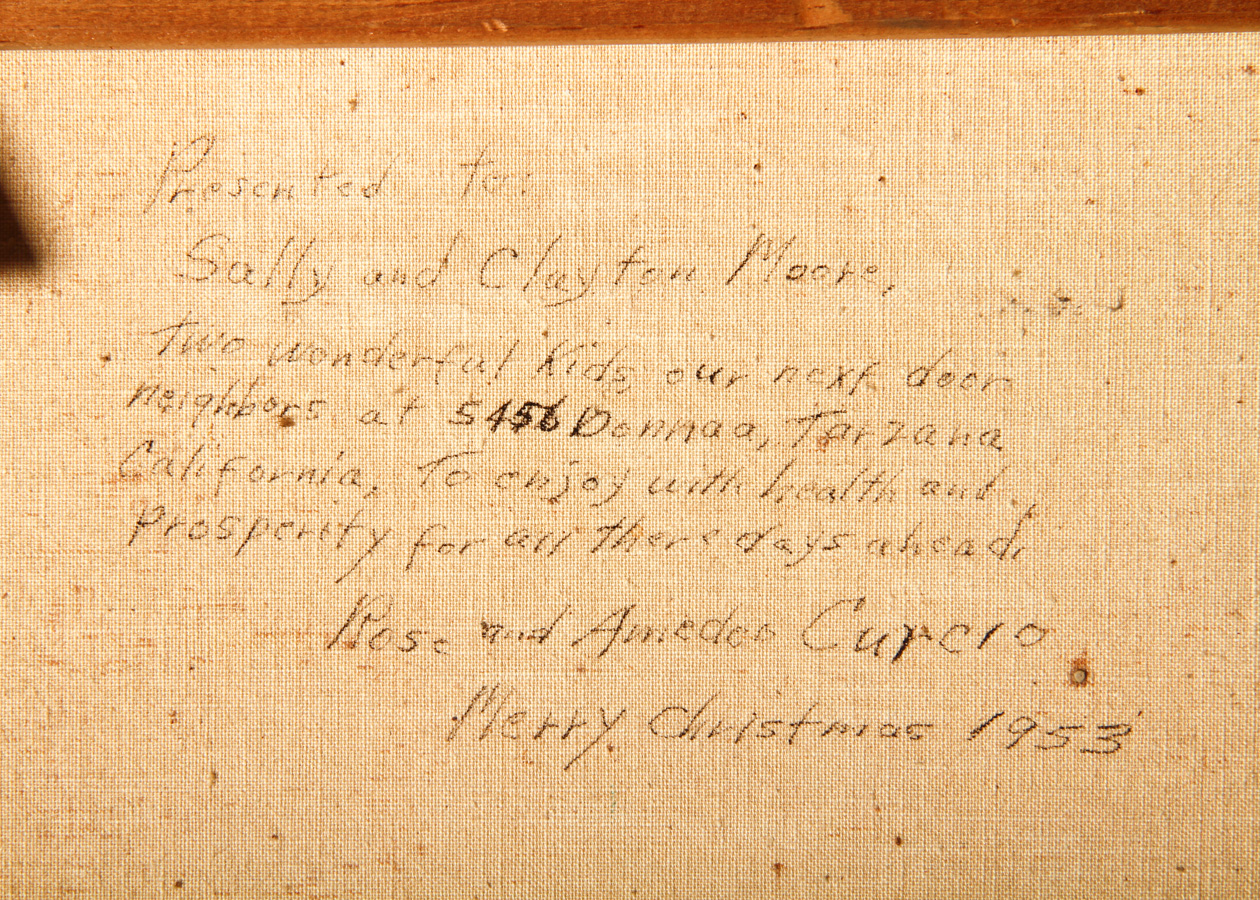 Presented to:
Sally and Clayton Moore,
two wonderful Kids our next door
neighbors at 5456 Donnaa, Tarzana
California, To enjoy with health and
prosperity for all there days ahead.
Rose and Amedeo Cupelo
Merry Christmas 1953